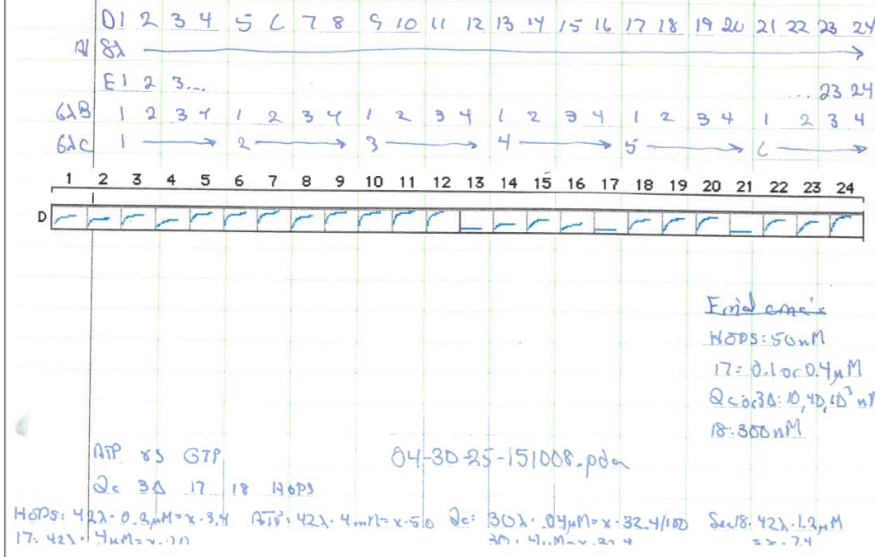 D1 2 3 4 5 6 7 8 9 10 11 12 13 14 15 16 17 18 19 20 21 22 23 24
A 8λ
E1 2 3... ... 23 24
6λB 1 2 3 4 1 2 3 4 1 2 3 4 1 2 3 4 1 2 3 4 1 2 3 4
6λC 1 2 3 4 5 6
1 2 3 4 5 6 7 8 9 10 11 12 13 14 15 16 17 18 19 20 21 22 23 24
D
HOPS: 50nM
17: 0.1 or 0.4µM
Qc or 3Δ: 10, 40, 10³ nM
18: 300nM
ATP vs GTP
04-30-25-151008.pda
Qc 3Δ 17 18 HOPS
HOPS: 42λ·0.8µM=x·3.4 ATP: 42λ·4mM=x·50 Qc: 30λ·.04µM=x·32.4/100 Sec18: 42λ·1.2µM
17: 42λ· 4µM=x· =x·7.4